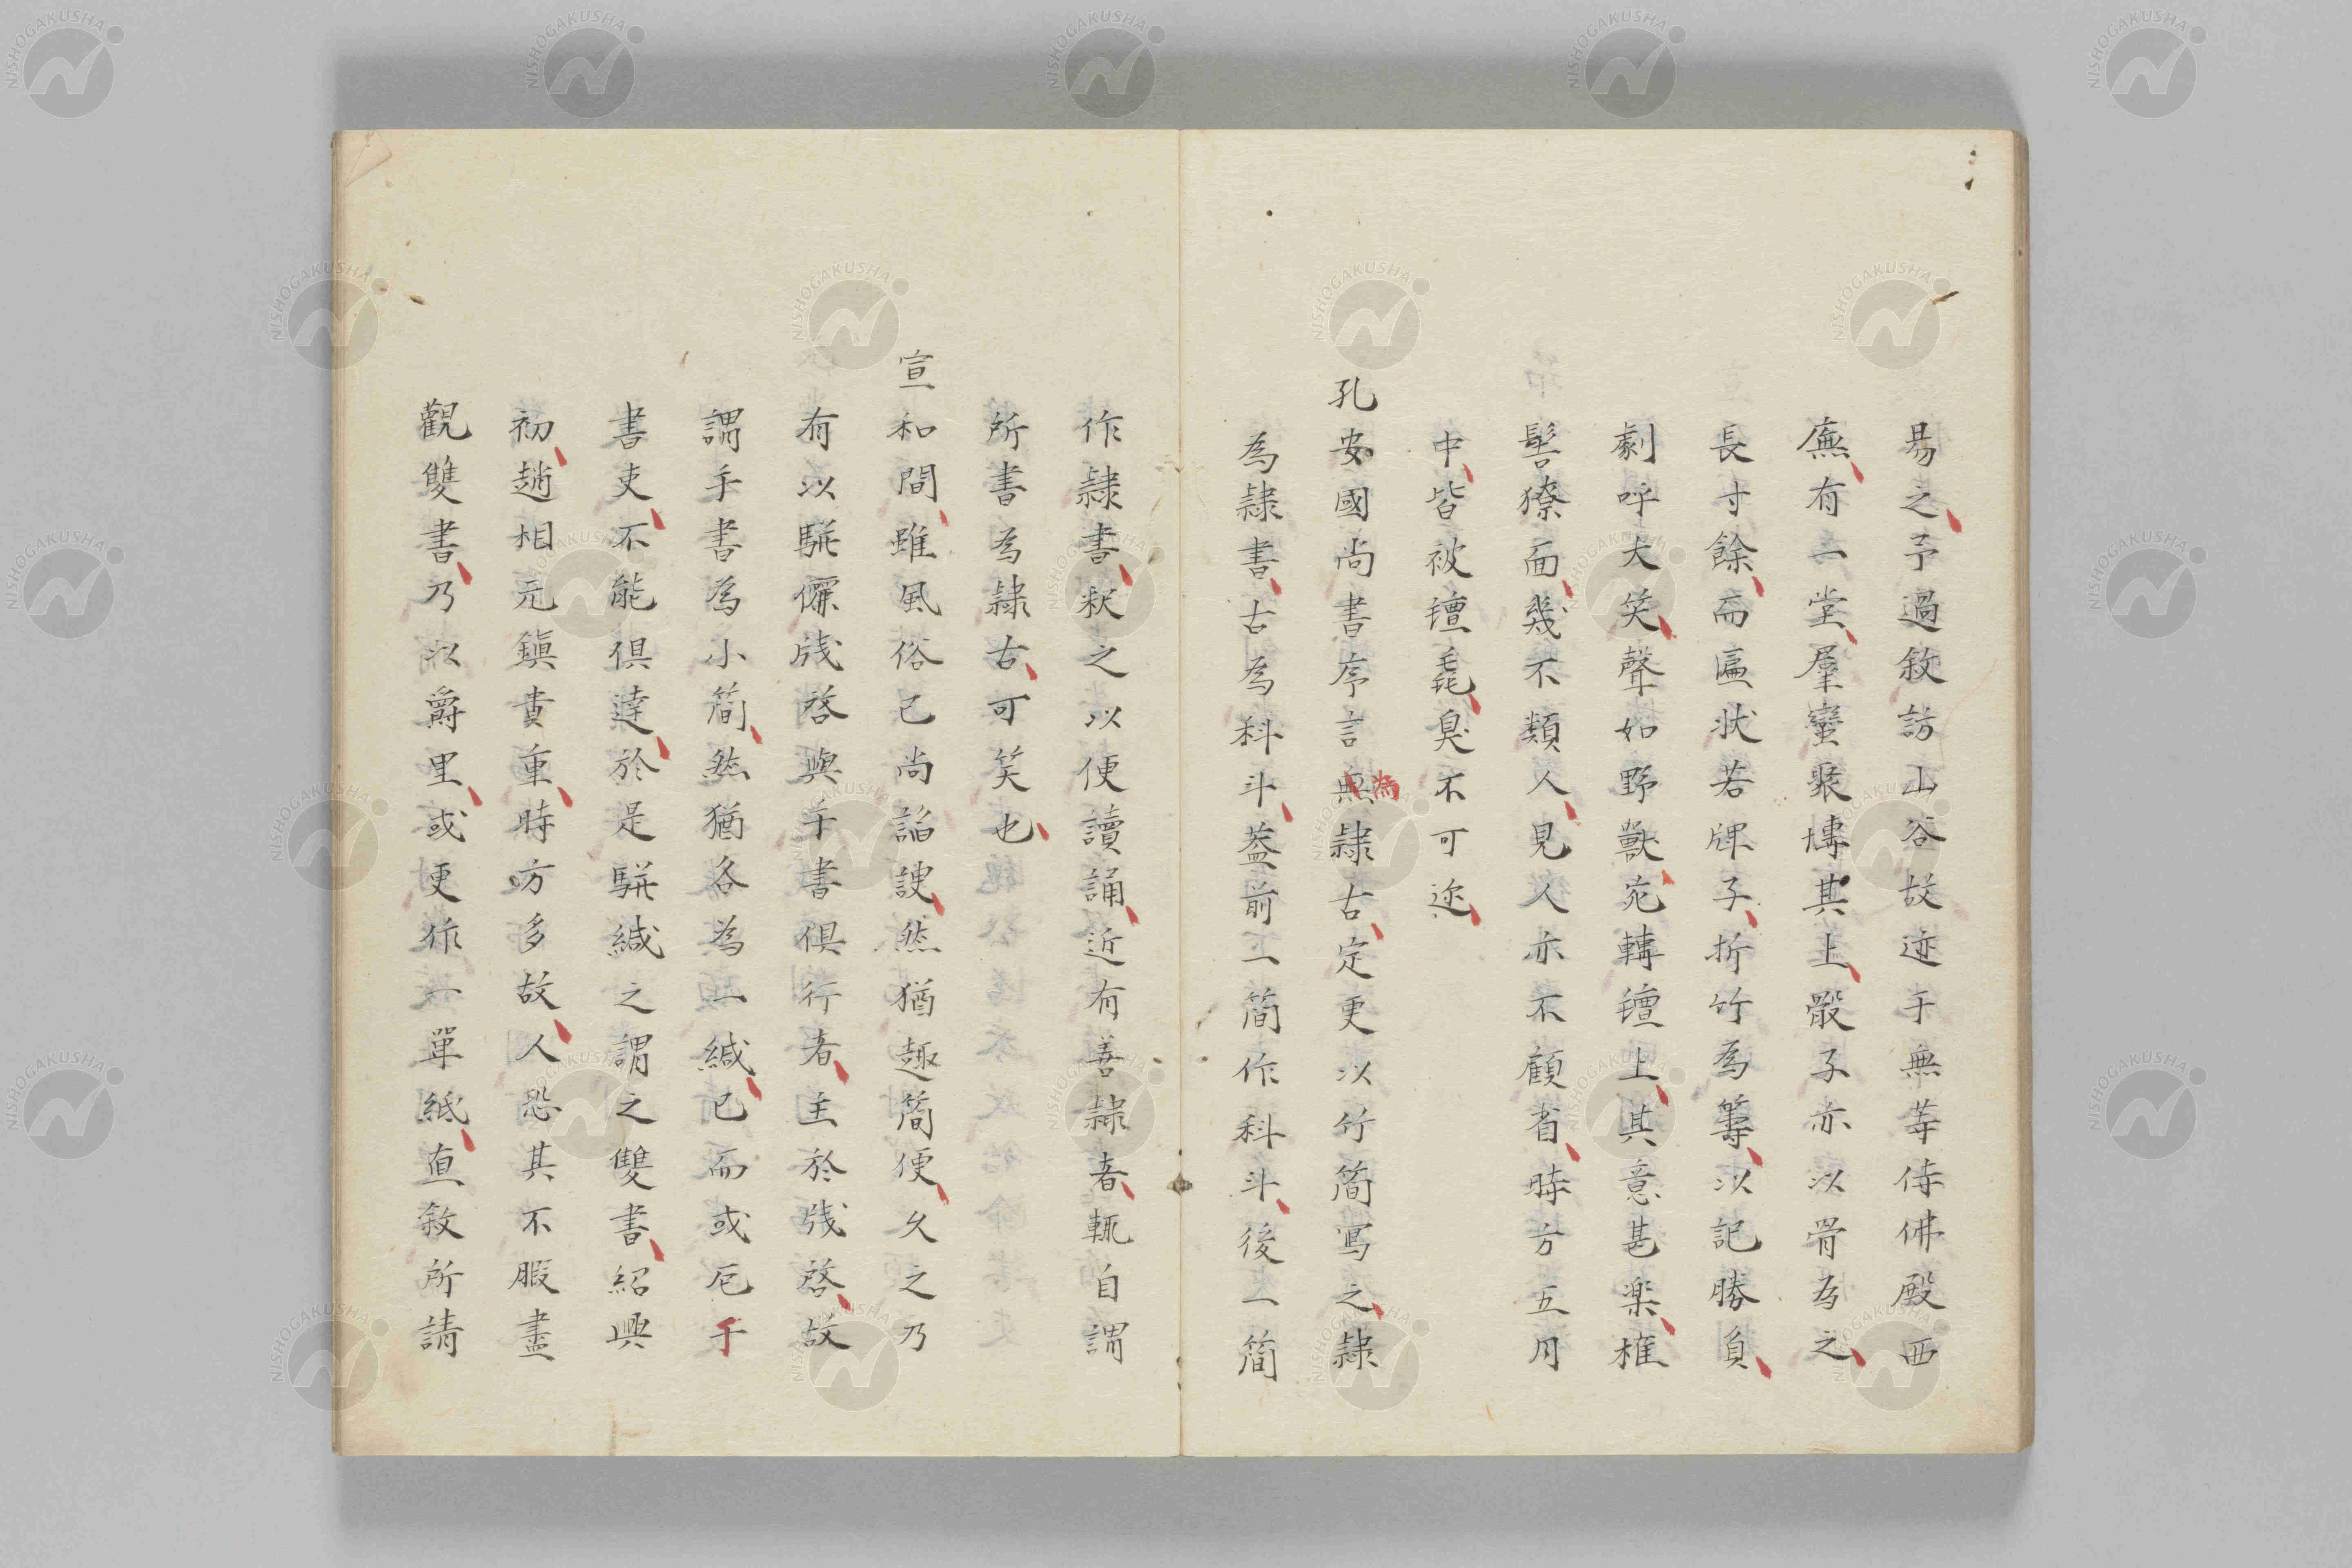 易之予過敘訪山谷故迹于無等佳佛殿西
廡有一堂羣蠻聚博其上骰子亦以骨為之
長寸餘而匾状若牌子折竹為籌以記勝負
劇呼大笑聲如野獸宛轉氊上其意甚楽椎
髻獠面幾不類人見人亦不顧省時方五月
中皆被氊毳臭不可迩
孔安國尚書序言無為隷古定更以竹簡寫之隷
為隷書古為科斗蓋前一簡作科斗後一簡
作隷書釈之以便讀誦近有善隷者輒自謂
所書為隷古可笑也
宣和間雖風俗已尚諂諛然猶趣簡便久之乃
有以駢儷牋啓與手書俱行者主於牋啓故
謂手書為小簡然猶各為一緘已而或厄于
書吏不能俱達於是駢緘之謂之雙書紹興
初趙相元鎮貴重時方多故人恐其不暇盡
觀雙書乃以爵里或更作一單紙直敘所請
NISHOGAKUSHA